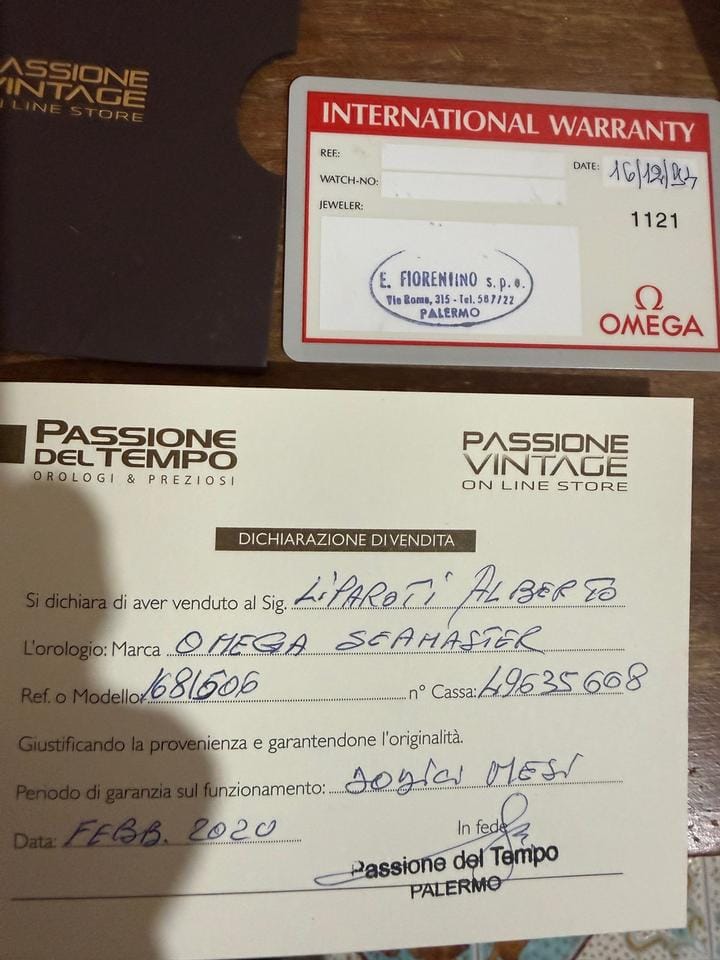 PASSIONE
VINTAGE
ON LINE STORE
INTERNATIONAL WARRANTY
REF.:
DATE: 16/12/94
WATCH-NO:
JEWELER:
1121
E. FIORENTINO s.p.a.
Via Roma, 315 - Tel. 587/22
PALERMO
Ω
OMEGA
PASSIONE
DEL TEMPO
OROLOGI & PREZIOSI
PASSIONE
VINTAGE
ON LINE STORE
DICHIARAZIONE DI VENDITA
Si dichiara di aver venduto al Sig. LiPAROTi ALBERTO
L'orologio: Marca OMEGA SEAMASTER
Ref. o Modello: 1681606 n° Cassa: 49635608
Giustificando la provenienza e garantendone l'originalità.
Periodo di garanzia sul funzionamento: DODICI MESI
Data: FEBB. 2020 In fede
Passione del Tempo
PALERMO